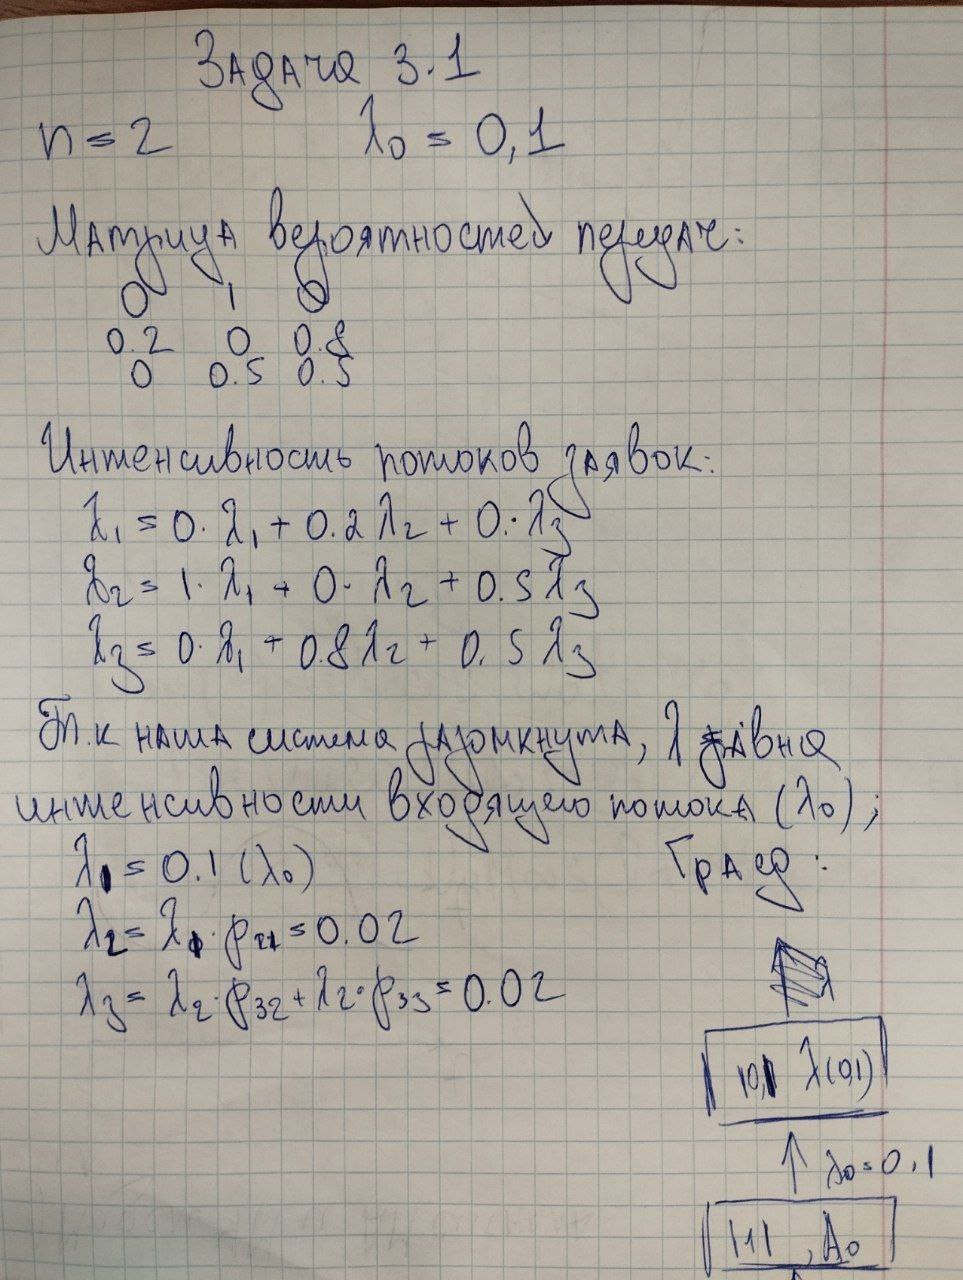 Задача 3.1
n = 2 λ0 = 0,1
Матрица вероятностей передач:
0 1 0
0.2 0 0.8
0 0.5 0.5
Интенсивность потоков заявок:
λ1 = 0·λ1 + 0.2λ2 + 0·λ3
λ2 = 1·λ1 + 0·λ2 + 0.5λ3
λ3 = 0·λ1 + 0.8λ2 + 0.5λ3
Т.к наша система разомкнута, λ равна
интенсивности входящего потока (λ0);
λ1 = 0.1 (λ0)
Граф:
λ2 = λ1·p21 = 0.02
λ3 = λ2·p32 + λ2·p33 = 0.02
λ(0,1)
λ0 = 0,1